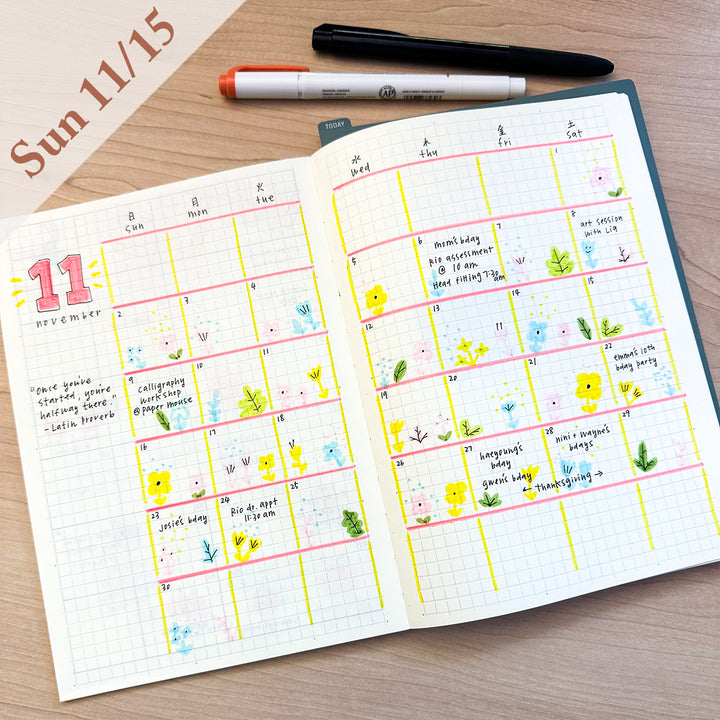 Sun 11/15
TODAY
日 月 火
sun mon tue
水 木 金 土
wed thu fri sat
11
november
"Once you've
started, you're
halfway there."
- Latin Proverb
1
2 3 4
5 6 7 8
mom's bday
Rio assessment
@ 10 am
Head fitting 7:30 am
art session
with Lia
9 10 11
calligraphy
workshop
@ paper mouse
12 13 14 15
16 17 18
19 20 21 22
emma's 10th
bday party
23 24 25
Josie's bday
Rio dr. appt
11:30 am
26 27 28 29
haeyoung's
bday
gwen's bday
nini + wayne's
bdays
← thanksgiving →
30
AP